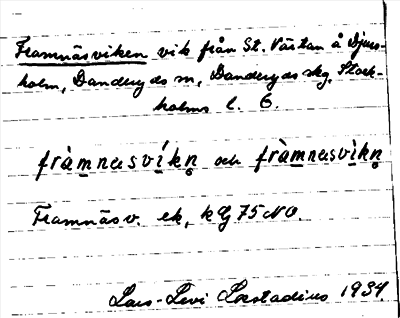 Framnäsviken vik från St. Värtan å Djurs-
holm, Danderyds sn, Danderyds skg, Stock-
holms l. 6.
fràmnasvíkn och fràmnasvìkn
Framnäsv. ek, kg 75 NO.
Lars-Levi Læstadius 1934.